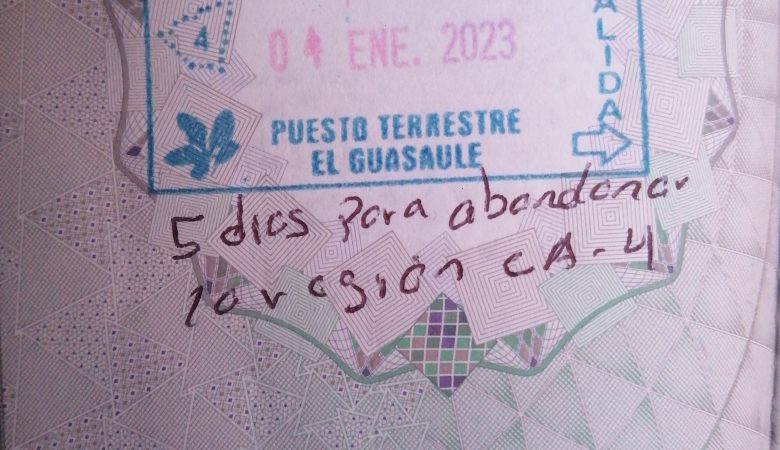 4
04 ENE. 2023
ALIDA
PUESTO TERRESTRE
EL GUASAULE
5 dias para abandonar
la region CA-4